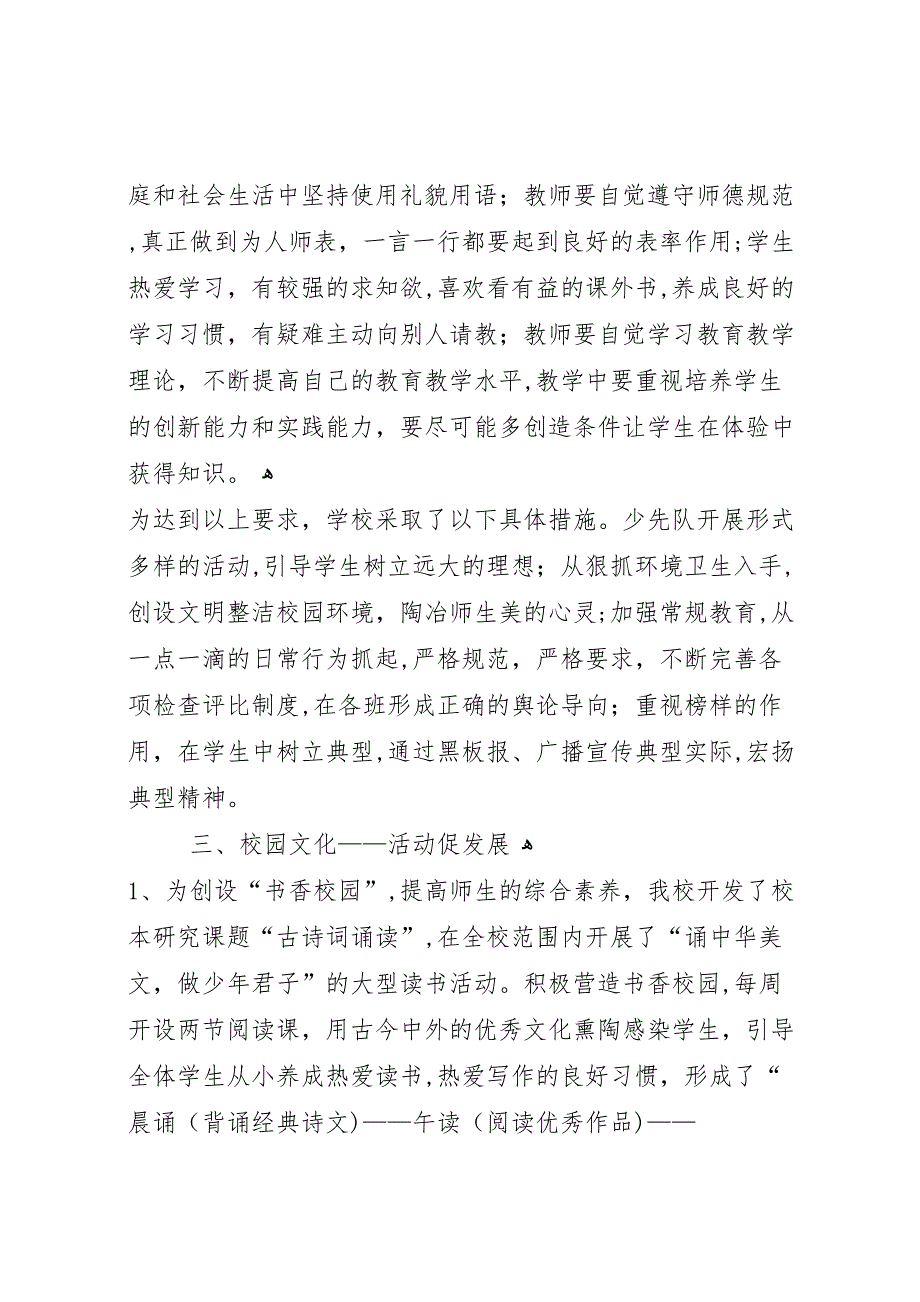 庭和社会生活中坚持使用礼貌用语；教师要自觉遵守师德规范
,真正做到为人师表，一言一行都要起到良好的表率作用;学生
热爱学习，有较强的求知欲,喜欢看有益的课外书,养成良好的
学习习惯，有疑难主动向别人请教；教师要自觉学习教育教学
理论，不断提高自己的教育教学水平,教学中要重视培养学生
的创新能力和实践能力，要尽可能多创造条件让学生在体验中
获得知识。ﻫ
为达到以上要求，学校采取了以下具体措施。少先队开展形式
多样的活动,引导学生树立远大的理想；从狠抓环境卫生入手,
创设文明整洁校园环境，陶冶师生美的心灵;加强常规教育,从
一点一滴的日常行为抓起,严格规范，严格要求，不断完善各
项检查评比制度,在各班形成正确的舆论导向；重视榜样的作
用，在学生中树立典型,通过黑板报、广播宣传典型实际,宏扬
典型精神。
三、校园文化——活动促发展ﻫ
1、为创设“书香校园”,提高师生的综合素养，我校开发了校
本研究课题“古诗词诵读”,在全校范围内开展了“诵中华美
文，做少年君子”的大型读书活动。积极营造书香校园,每周
开设两节阅读课，用古今中外的优秀文化熏陶感染学生，引导
全体学生从小养成热爱读书,热爱写作的良好习惯，形成了“
晨诵（背诵经典诗文)——午读（阅读优秀作品)——